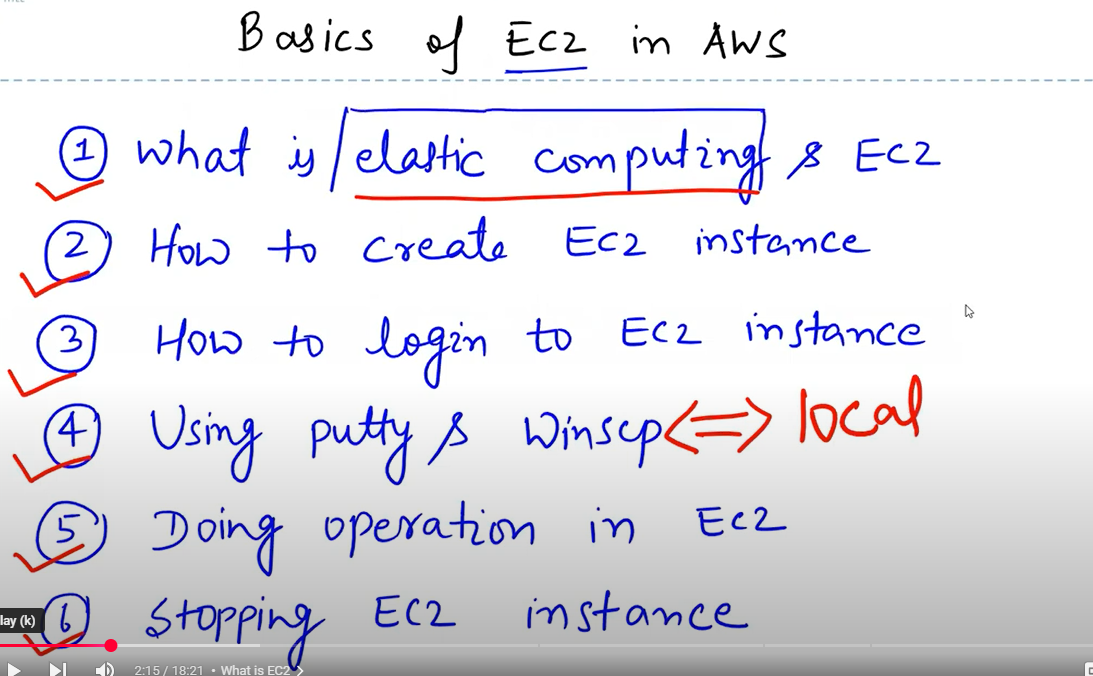 Basics of EC2 in AWS
1 What is elastic computing & EC2
2 How to create EC2 instance
3 How to login to EC2 instance
4 Using putty & Winscp <=> local
5 Doing operation in EC2
6 Stopping EC2 instance
lay (k)
2:15 / 18:21 • What is EC2 >